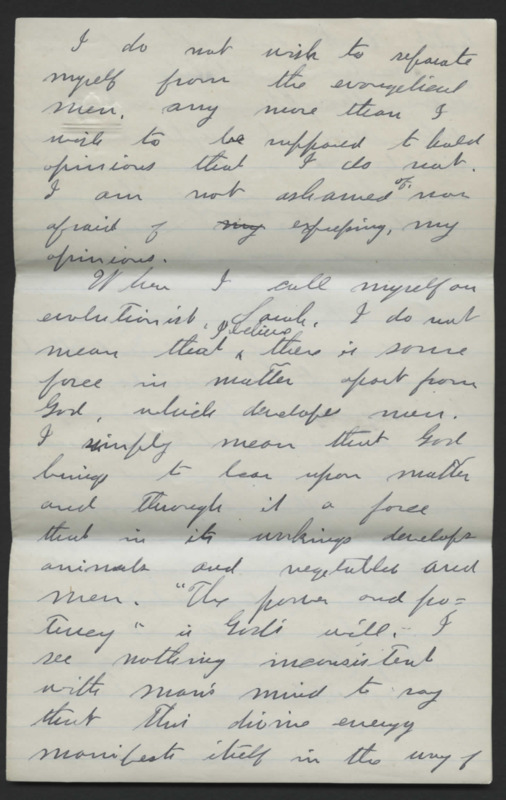 I do not wish to separate
myself from the evangelical
men, any more than I
wish to be supposed to hold
opinions that I do not.
I am not ashamed of, nor
afraid of my expressing, my
opinions.
When I call myself an
evolutionist, Sarah, I do not
mean that I believe there is some
force in matter apart from
God, which develops men.
I simply mean that God
brings to bear upon matter
and through it a force
that in its workings develops
animals and vegetables and
men. "The power and po-
tency" is God's will. I
see nothing inconsistent
with man's mind to say
that this divine energy
manifests itself in the way of